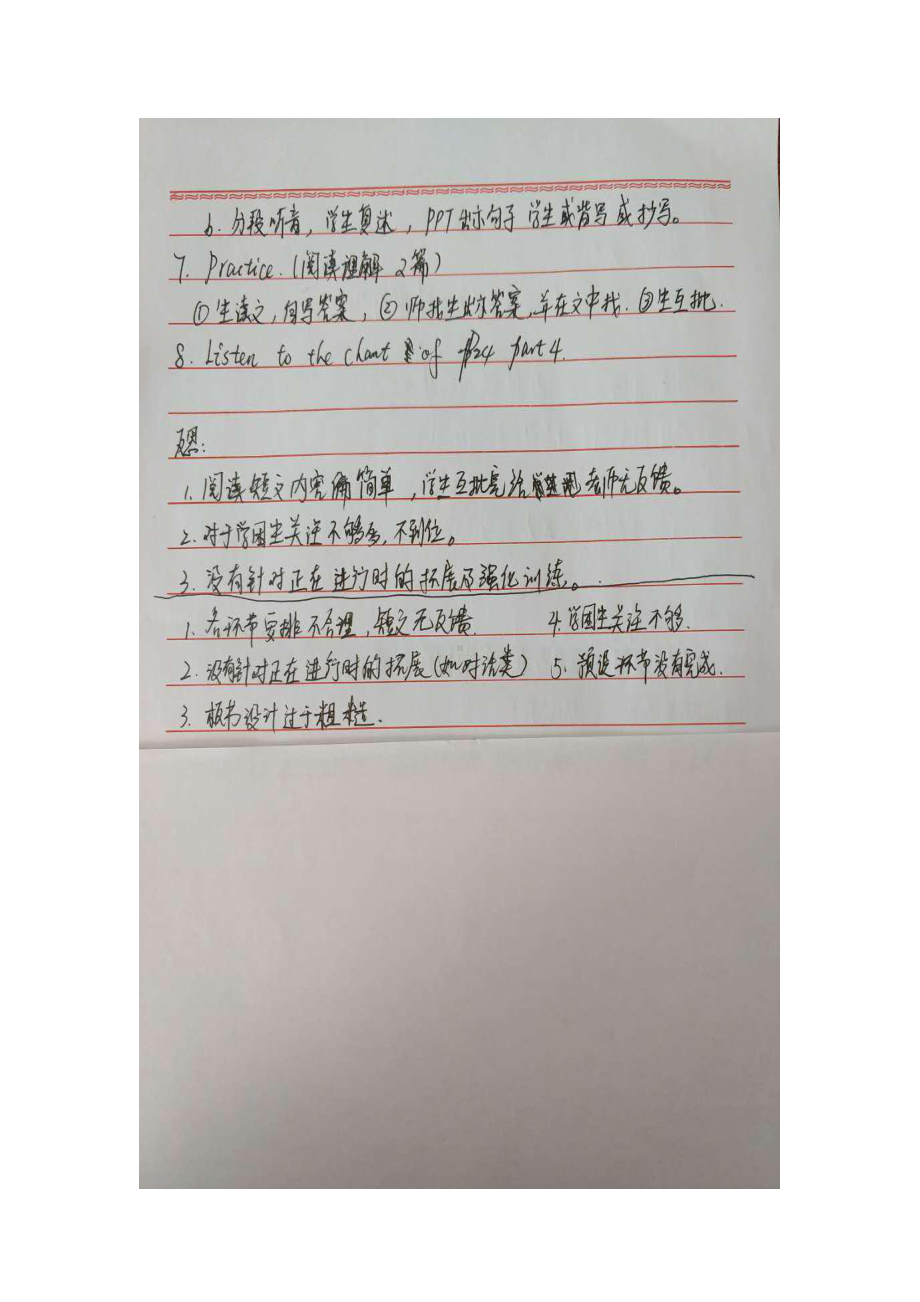 6. 分段听音，学生复述，PPT出示句子 学生或背写或抄写。
7. Practice.（阅读理解 2篇）
①生读文，自写答案，②师找生出示答案，并在文中找. ③生互批.
8. Listen to the chant of P24 Part 4.
反思：
1. 阅读短文内容偏简单，学生互批完 老师无反馈。
2. 对于学困生关注不够多，不到位。
3. 没有针对正在进行时的拓展及强化训练。
1. 各环节安排不合理，短文无反馈. 4. 学困生关注不够.
2. 没有针对正在进行时的拓展（如对话类） 5. 预设环节没有完成.
3. 板书设计过于粗糙.